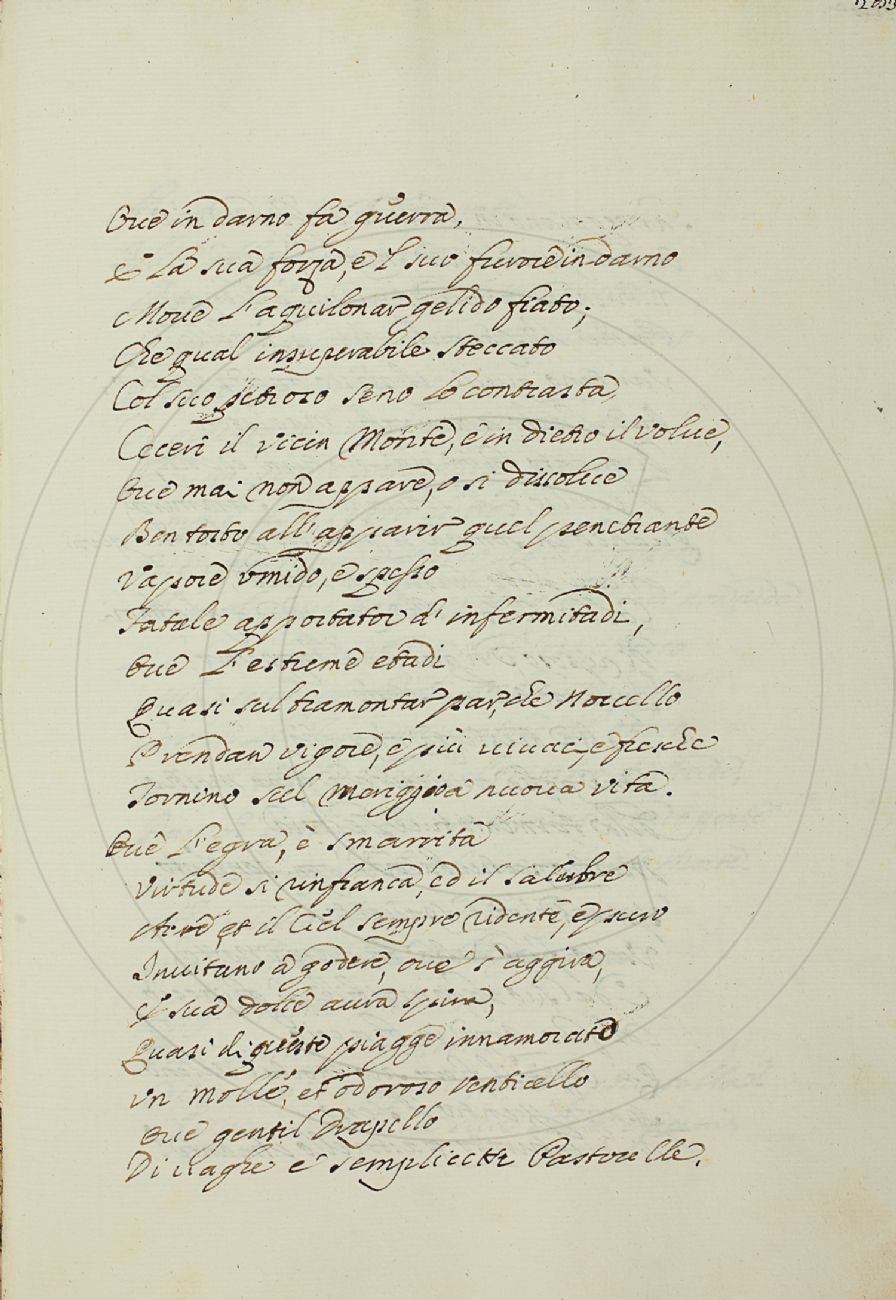 Oue in darno fà guerra,
E la sua forza, e 'l suo furore in darno
Moue l'aquilonar gelido fiato;
Che qual insuperabile steccato
Col suo petroso seno lo contrasta
Ceceri il vicin Monte, e in dietro il volue,
Oue mai non appare, o si dissolue
Ben tosto all'apparir quel penetrante
Vapore vmido, e spesso
Fatale apportator d'infermitadi,
Oue l'estreme etadi
Quasi sul tramontar par, che nouello
Prendan vigore, e più viuaci, e fresche
Tornino sul meriggio a nuoua vita.
Oue l'egra, e smarrita
Virtude si rinfranca, ed il salubre
Aere et il Ciel sempre ridente, e puro
Inuitano a godere, oue s'aggira,
E sua dolce aura spira,
Quasi di queste piagge innamorato
Vn molle, et odoroso venticello
Oue gentil Drapello
Di vaghe e semplicette Pastorelle.